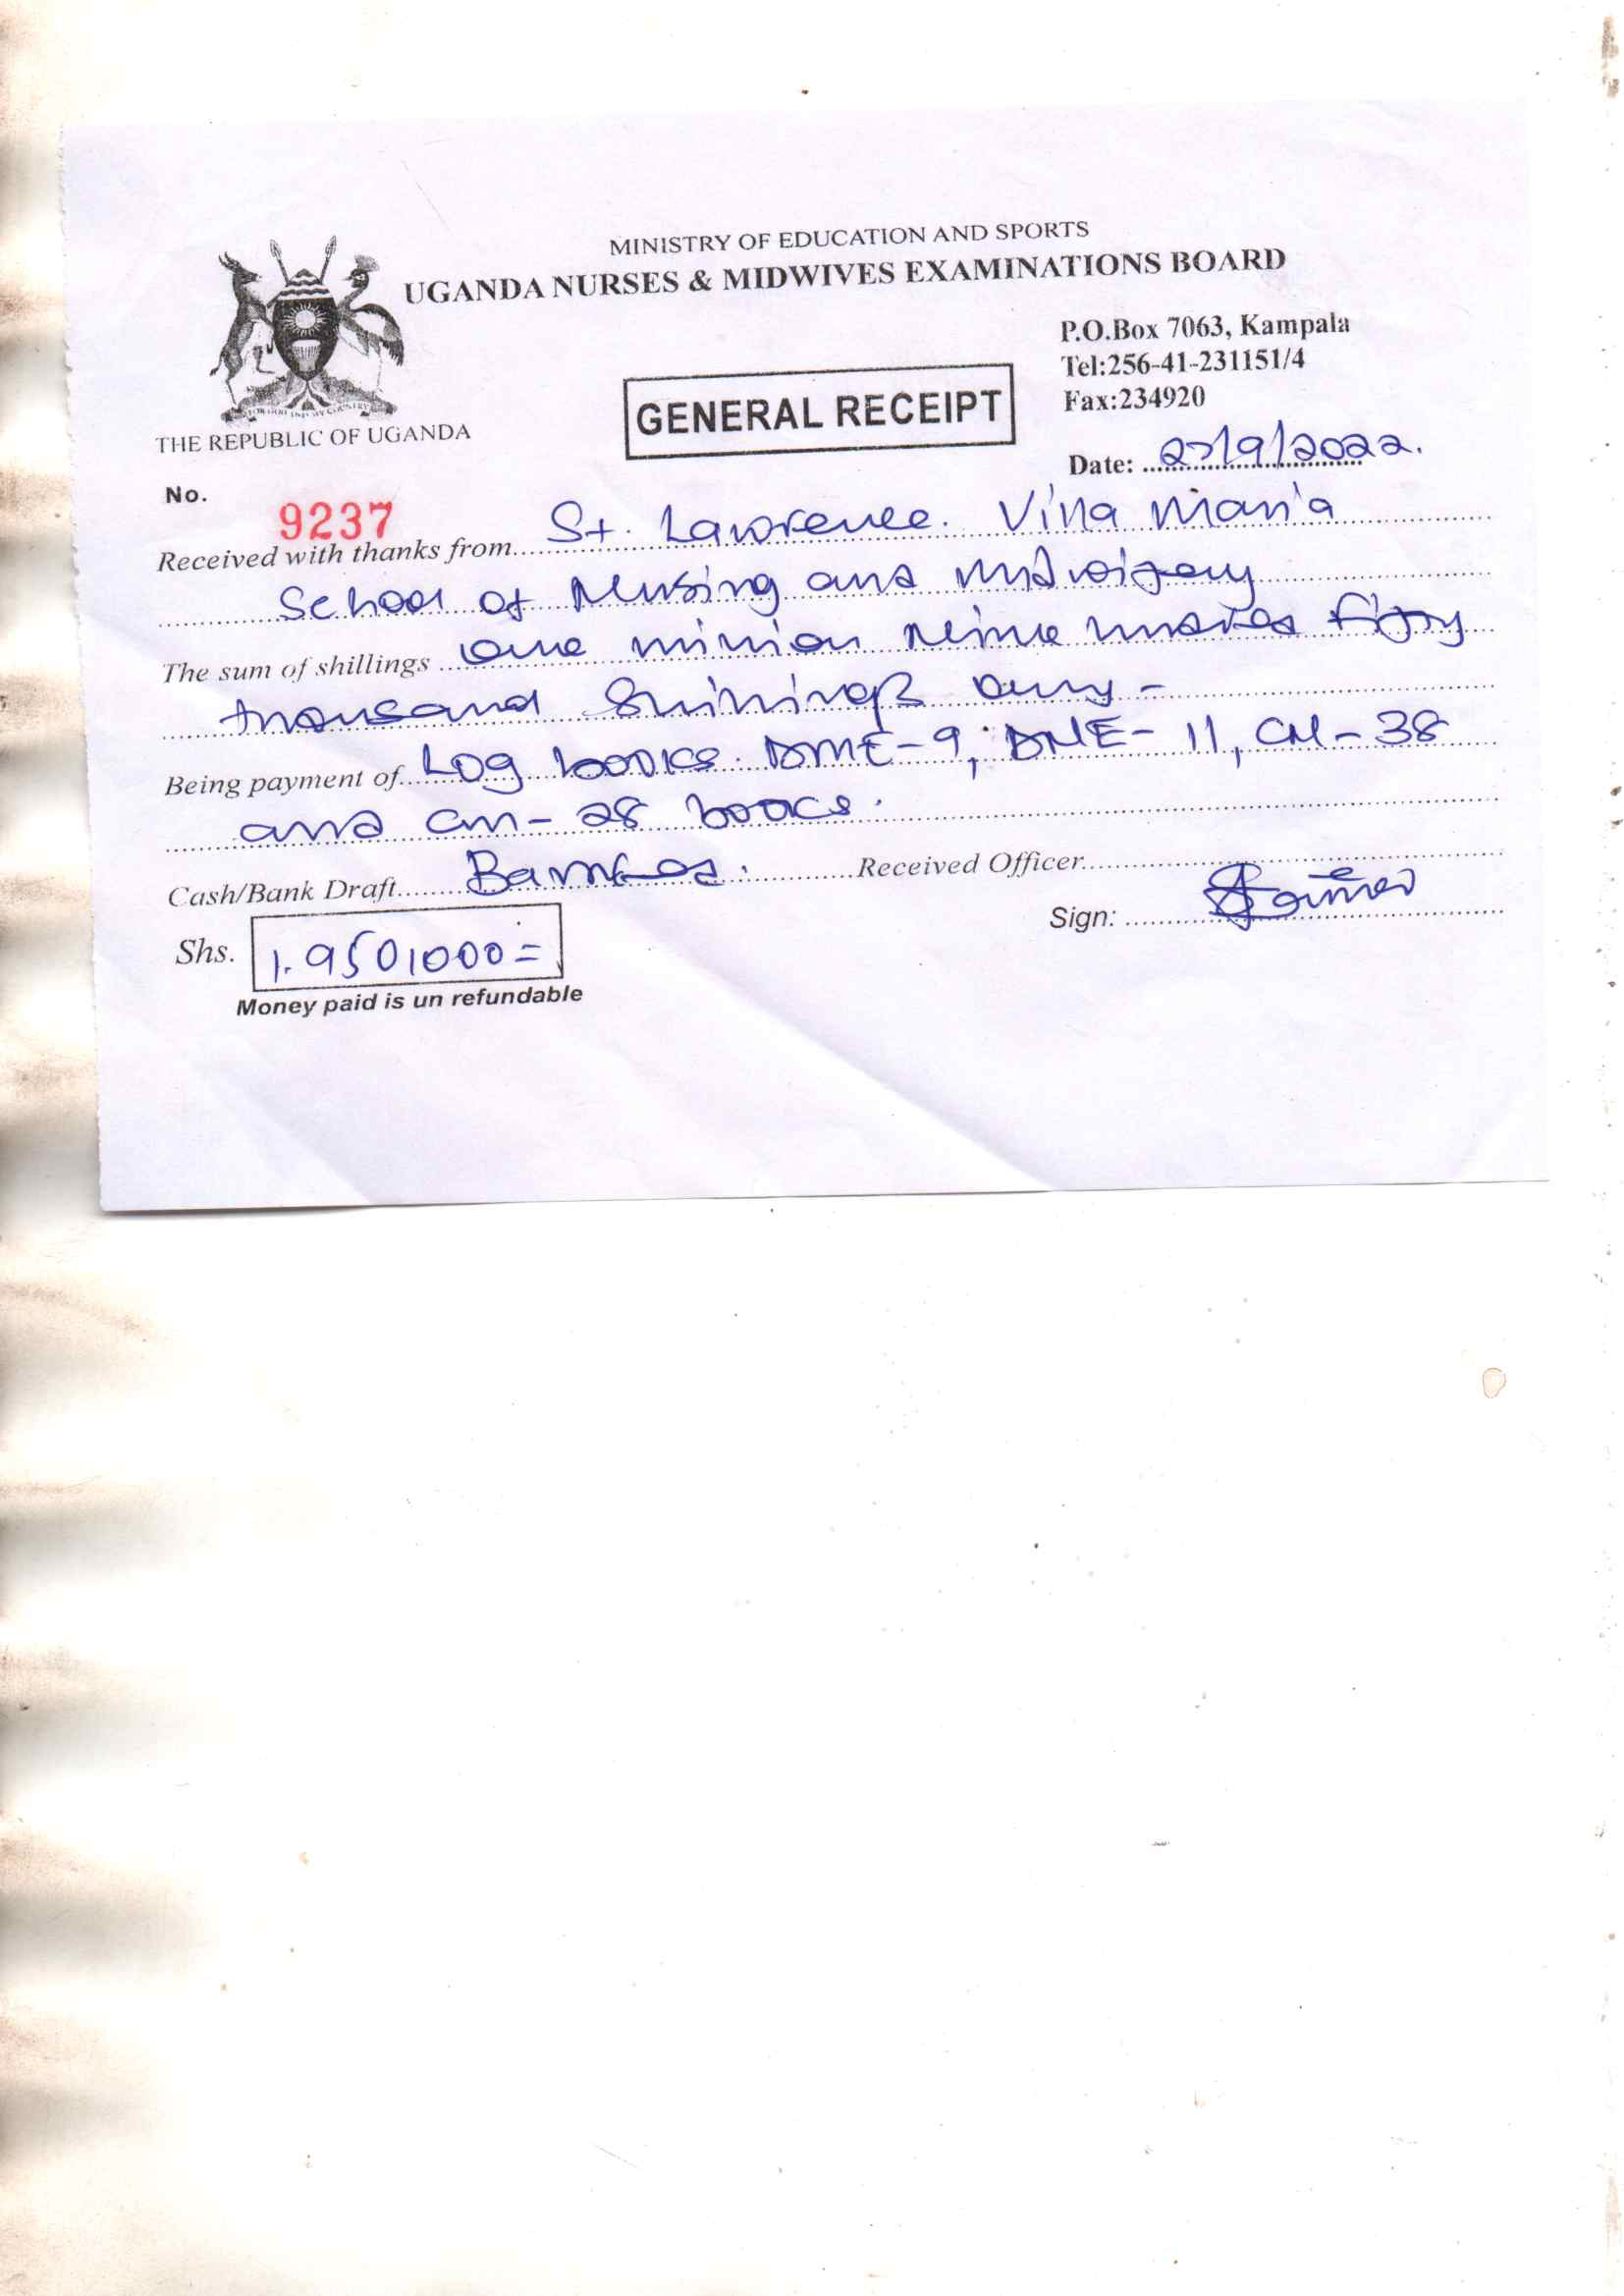 MINISTRY OF EDUCATION AND SPORTS
UGANDA NURSES & MIDWIVES EXAMINATIONS BOARD
P.O.Box 7063, Kampala
Tel:256-41-231151/4
Fax:234920
GENERAL RECEIPT
THE REPUBLIC OF UGANDA
Date: 27/9/2022.
No. 9237
Received with thanks from St. Lawrence. Villa Maria
School of Nursing and Midwifery
The sum of shillings One million Nine hundred fifty
thousand Shillings Only -
Being payment of Log books. DME-9, DNE-11, CM-38
and CM-28 books.
Cash/Bank Draft Banked. Received Officer
Sign:
Shs. 1.950,000=
Money paid is un refundable